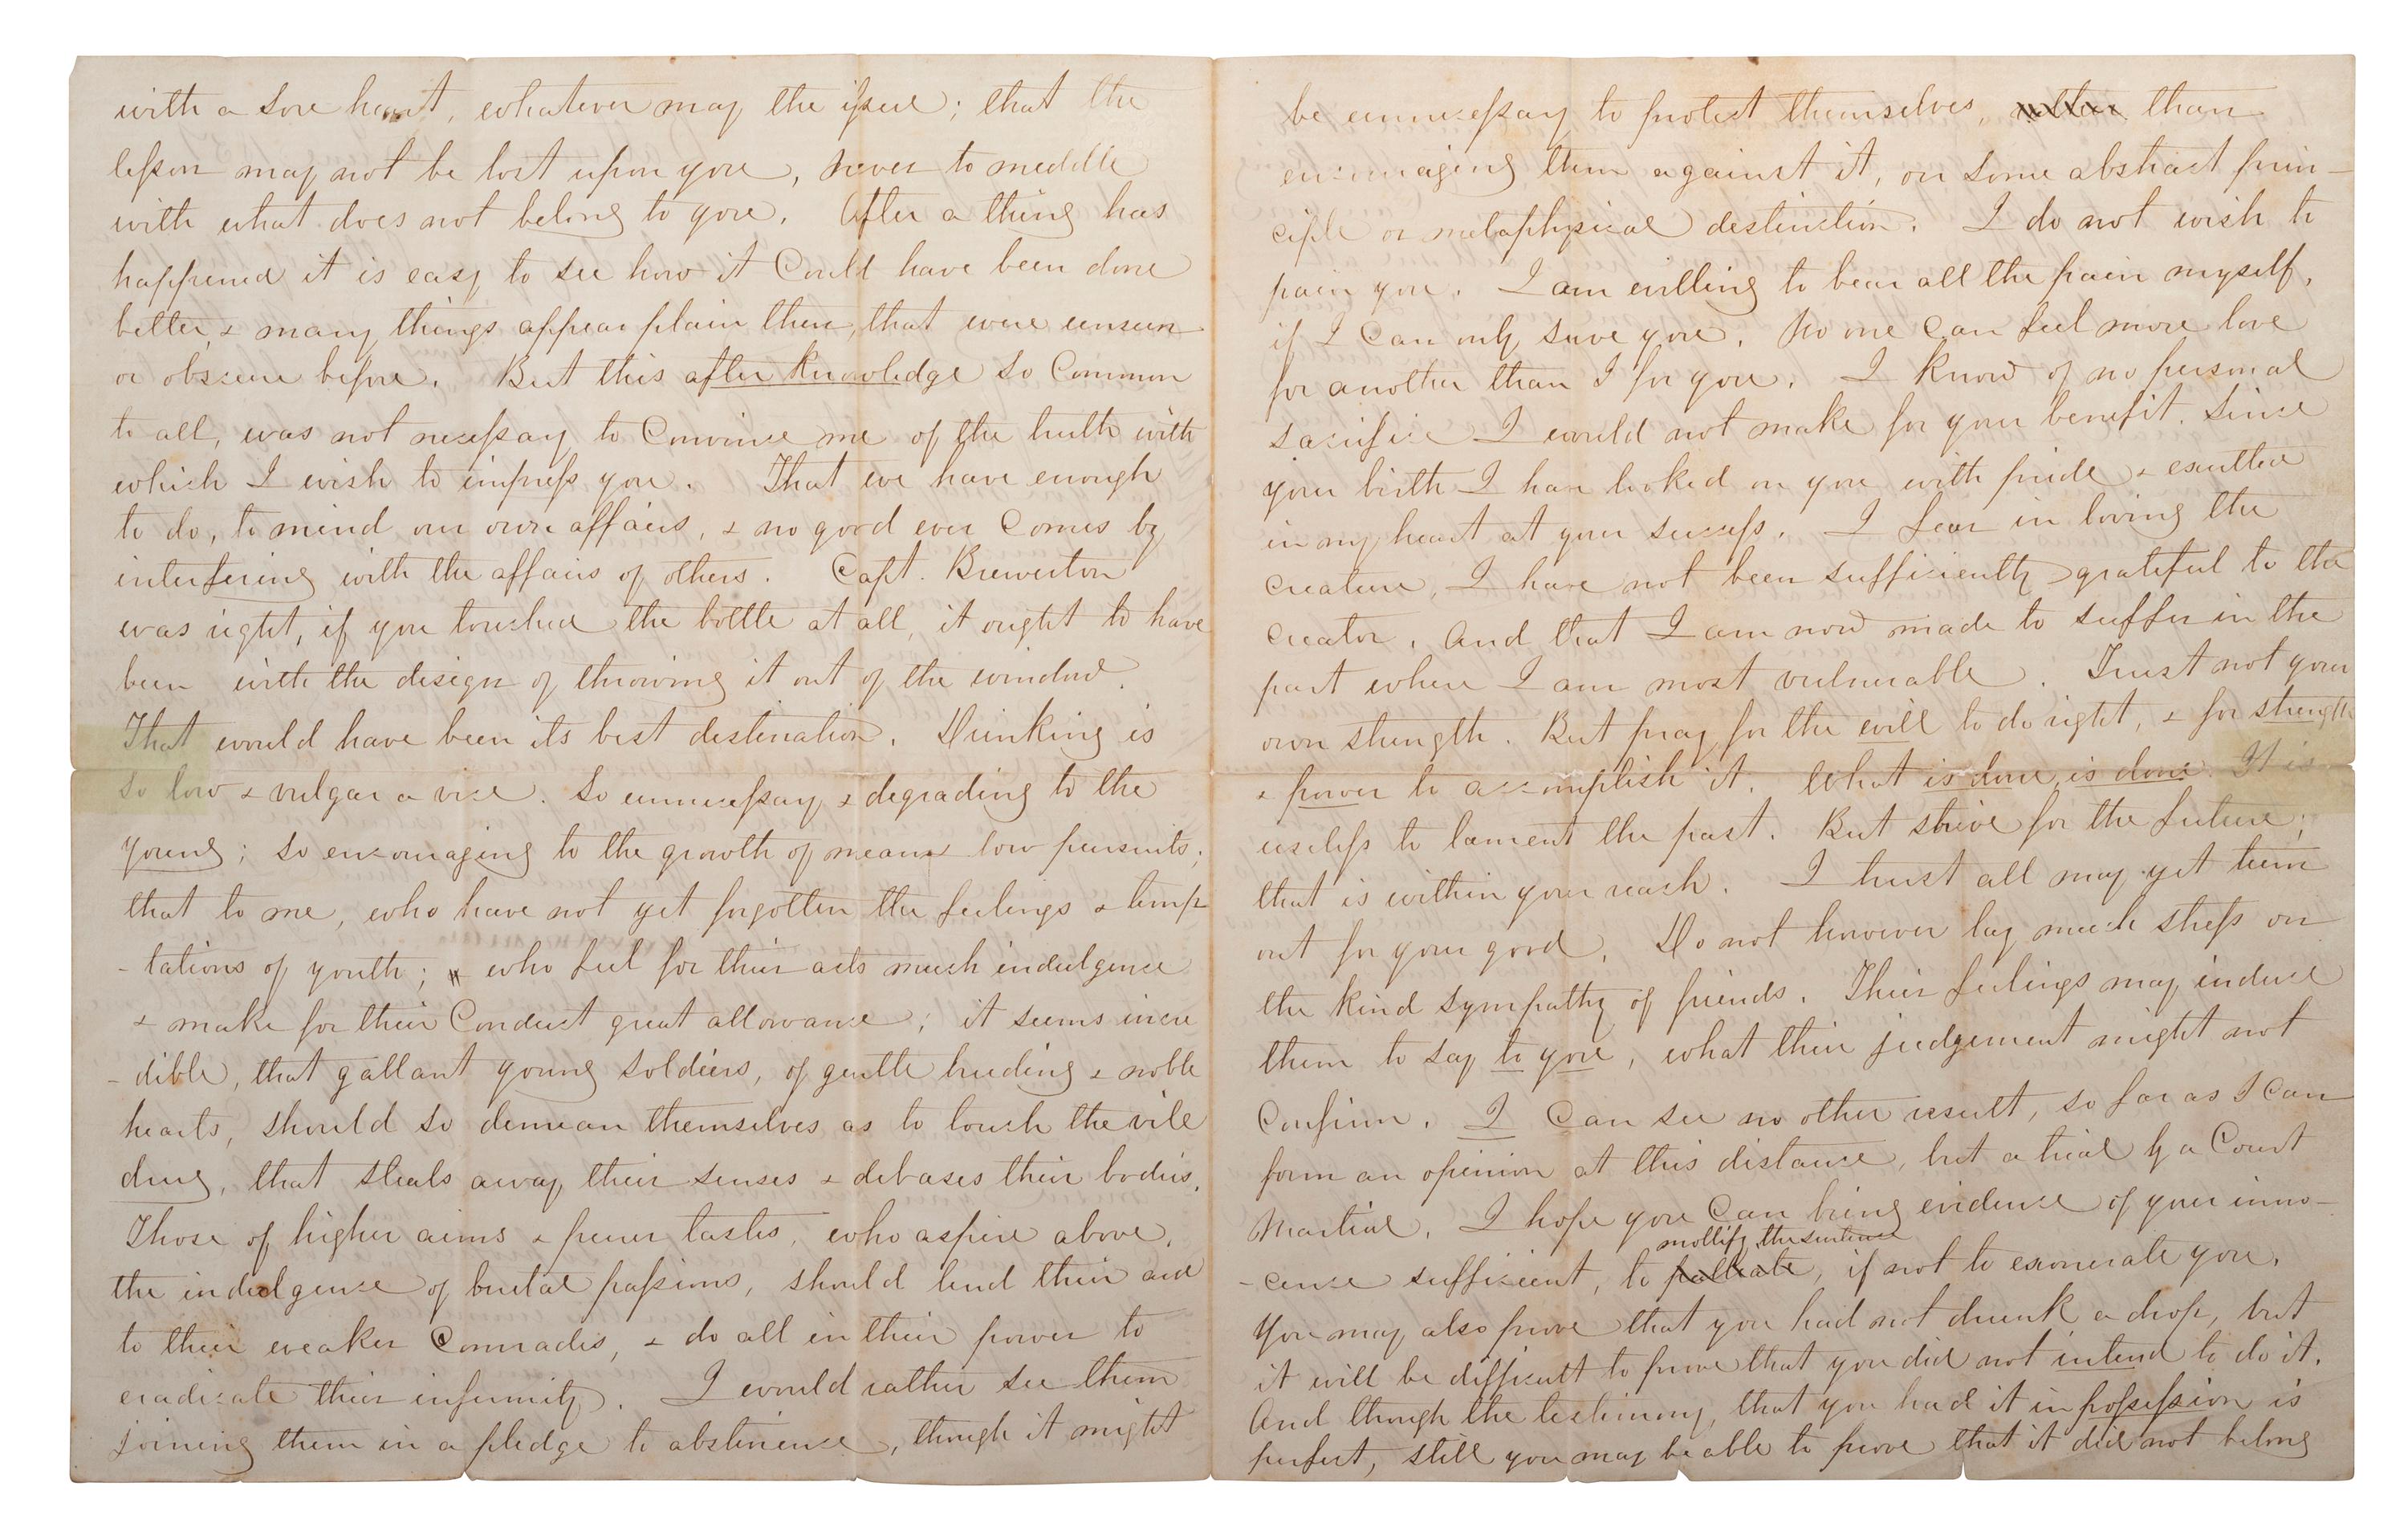 with a sore heart, whatever may the issue; that the
lesson may not be lost upon you, never to meddle
with what does not belong to you. After a thing has
happened it is easy to see how it Could have been done
better, & many things appear plain then, that were unseen
or obscure before. But this after knowledge so Common
to all, was not necessary to Convince me of the truth with
which I wish to impress you. That we have enough
to do, to mind our own affairs, & no good ever Comes by
interfering with the affairs of others. Capt. Brewerton
was right, if you touched the bottle at all, it ought to have
been with the design of throwing it out of the window.
That would have been its best destination. Drinking is
so low & vulgar a vice. So unnecessary & degrading to the
young; so encouraging to the growth of mean & low pursuits;
that to me, who have not yet forgotten the feelings & temp
-tations of youth; & who feel for their acts much indulgence
& make for their Conduct great allowance; it seems incre
-dible, that gallant young soldiers, of gentle breeding & noble
hearts, should so demean themselves as to touch the vile
drug, that steals away their senses & debases their bodies.
Those of higher aims & purer tastes, who aspire above,
the indulgence of brutal passions, should lend their aid
to their weaker Comrades, & do all in their power to
eradicate their infirmity. I would rather see them
joining them in a pledge to abstinence, though it might
be unnecessary to protect themselves, rather than
encouraging them against it, on some abstract prin-
ciple or metaphysical destinction. I do not wish to
pain you. I am willing to bear all the pain myself,
if I Can only save you. No one Can feel more love
for another than I for you. I know of no personal
sacrifice I would not make for your benefit. Since
your birth I have looked on you with pride & exulted
in my heart at your success. I fear in loving the
creature, I have not been sufficiently grateful to the
Creator. And that I am now made to suffer in the
part where I am most vulnerable. Trust not your
own strength. But pray for the will to do right, & for strength
& power to accomplish it. What is done, is done. It is
useless to lament the past. But strive for the future;
that is within your reach. I trust all may yet turn
out for your good. Do not however lay much stress on
the kind sympathy of friends. Their feelings may induce
them to say to you, what their judgement might not
Confirm. I Can see no other result, so far as I Can
form an opinion at this distance, but a trial by a Court
Martial. I hope you Can bring evidence of your inno-
mollify the sentence
-cence sufficient, to palliate, if not to exonerate you.
You may also prove that you had not drunk a drop, but
it will be difficult to prove that you did not intend to do it.
And though the testimony, that you had it in possession is
perfect, still you may be able to prove that it did not belong